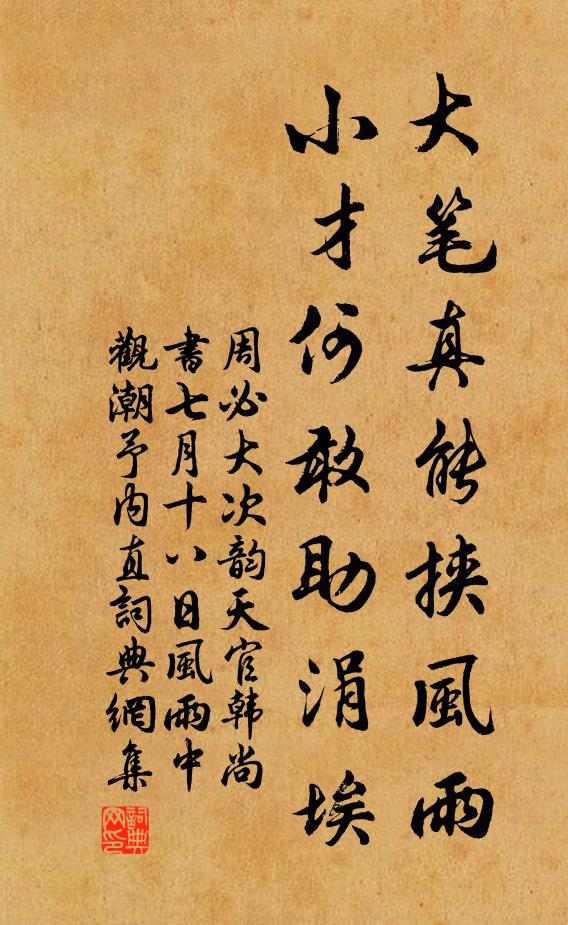 大笔真能挟風雨
小才何敢助涓埃
周必大次韵天官韩尚
書七月十八日風雨中
觀潮予内直詞典網集
詞典网印